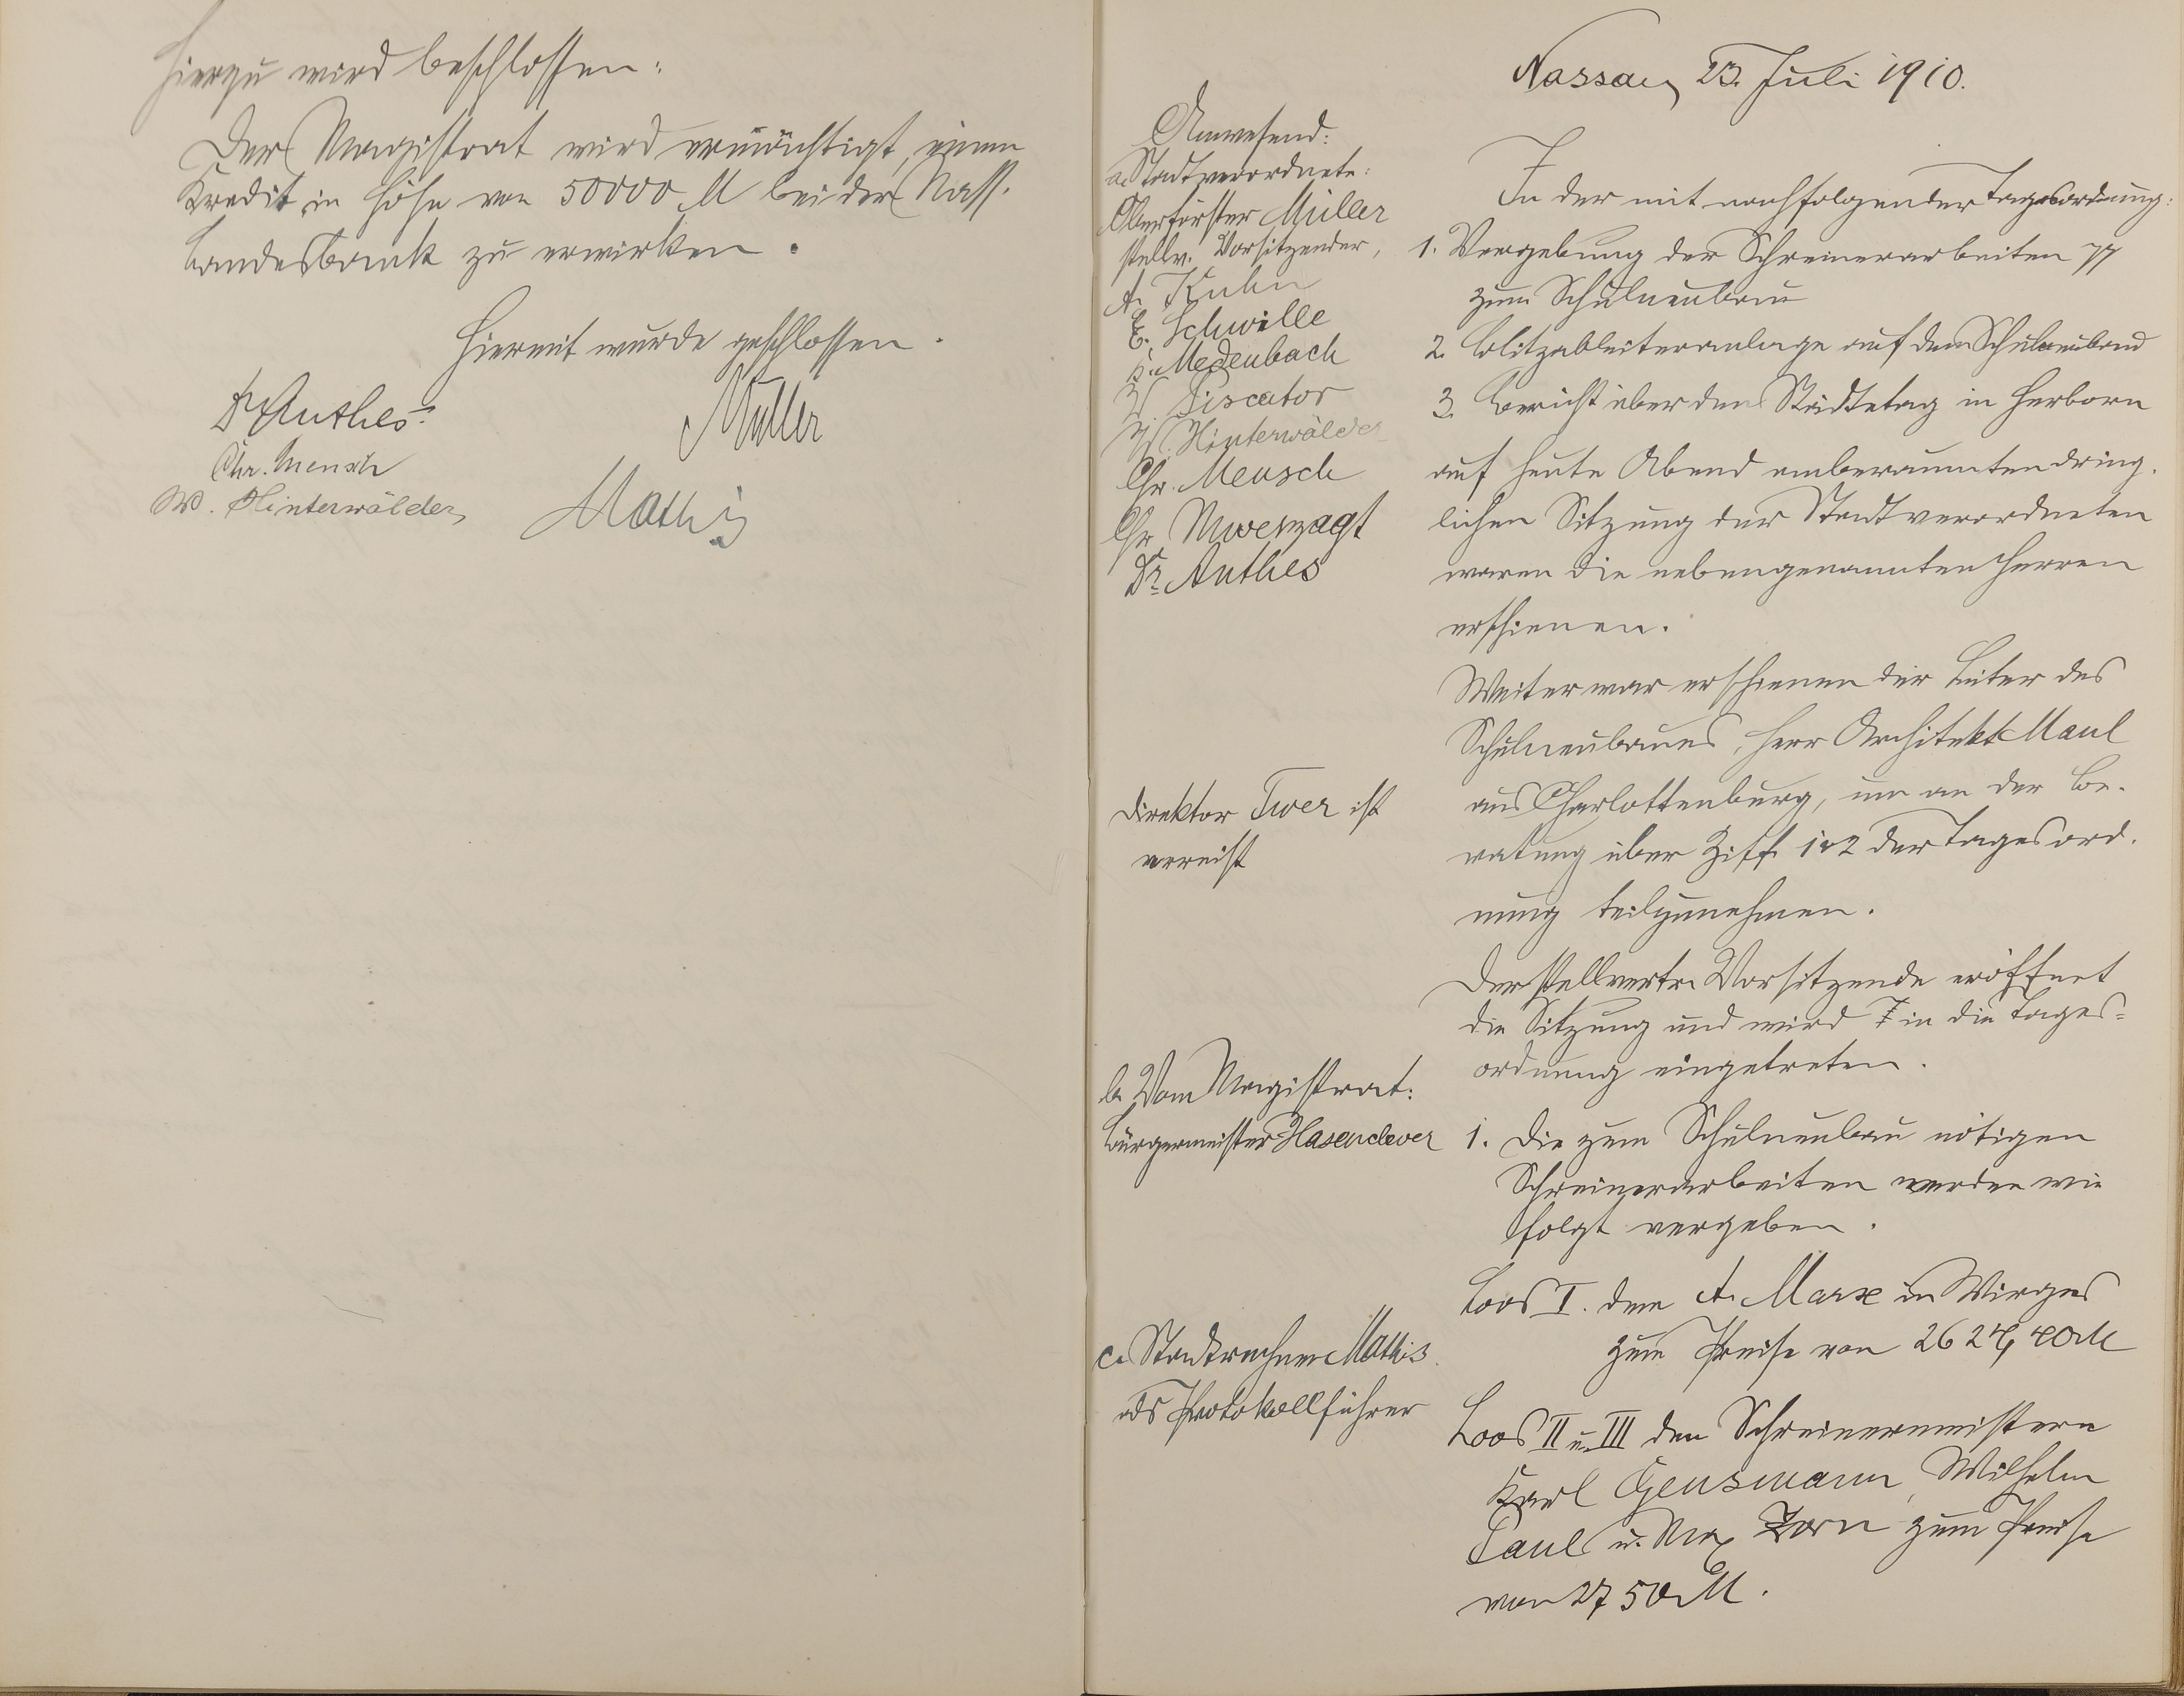 Hierzu wird beschlossen:
Der Magistrat wird ermächtigt, einen
Kredit in Höhe von 50000 M bei der Nass.
Landesbank zu erwirken.
Hiermit wurde geschlossen.
Dr Anthes
Müller
Chr. Mensch
W. Hinterwälder
Mathis
Nassau, 23. Juli 1910.
Anwesend:
a. Stadtverordnete:
Oberförster Müller
stellv. Vorsitzender,
A. Kuhn
E. Schwille
K. Medenbach
W. Piscator
W. Hinterwälder
Chr. Mensch
Chr. Unverzagt
Dr. Anthes
Direktor Twer ist
verreist
b. Vom Magistrat:
Bürgermeister Hasenclever
c. Stadtrechner Mathis
als Protokollführer
In der mit nachfolgender Tagesordnung:
1. Vergebung der Schreinerarbeiten pp
zum Schulneubau
2. Blitzableiteranlage auf dem Schulneubau
3. Bericht über den Städtetag in Herborn
auf heute Abend anberaumten dring-
lichen Sitzung der Stadtverordneten
waren die nebengenannten Herren
erschienen.
Weiter war erschienen der Leiter des
Schulneubaues, Herr Architekt Maul
aus Charlottenburg, um an der Be-
ratung über Ziff. 1 & 2 der Tagesord-
nung teilzunehmen.
Der stellvertr. Vorsitzende eröffnet
die Sitzung und wird in die Tages-
ordnung eingetreten.
1. Die zum Schulneubau nötigen
Schreinerarbeiten werden wie
folgt vergeben.
Loos I. dem A. Marx in Wirges
zum Preise von 2624,40 M
Loos II u. III den Schreinermeistern
Karl Gensmann, Wilhelm
Paul u. Max Zorn zum Preise
von 2750 M.